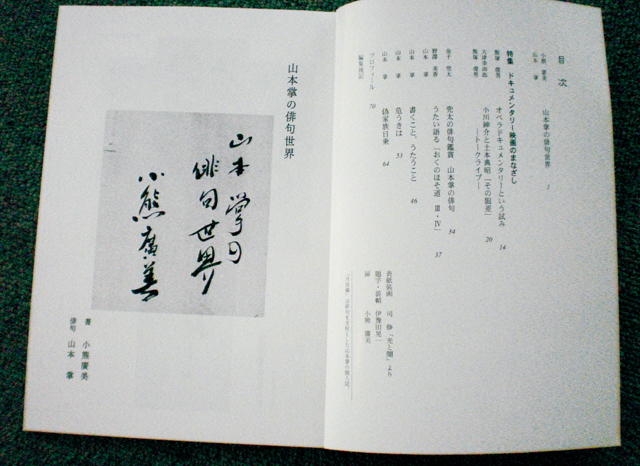 目次
小熊 廣美
山本 掌
山本掌の俳句世界 1
特集 ドキュメンタリー映画のまなざし
飯塚 俊男
オペラドキュメンタリーという試み 14
大津幸四郎
飯塚 俊男
小川紳介と土本典昭「その臨差」
―トークライブ― 20
金子 兜太
兜太の俳句鑑賞 山本掌の俳句 34
野澤 美香
うたい語る「おくのほそ道 Ⅲ・Ⅳ」 37
山本 掌
書くこと、うたうこと 46
山本 掌
危うきは 53
山本 掌
偽家族日乗 64
プロフィール 70
編集後記
表紙装画 司 修「光と闇」より
題字・装幀 伊豫田晃一
扉 小熊 廣美
山本掌の俳句世界
山本掌の
俳句世界
小熊廣美
書 小熊 廣美
俳句 山本 掌